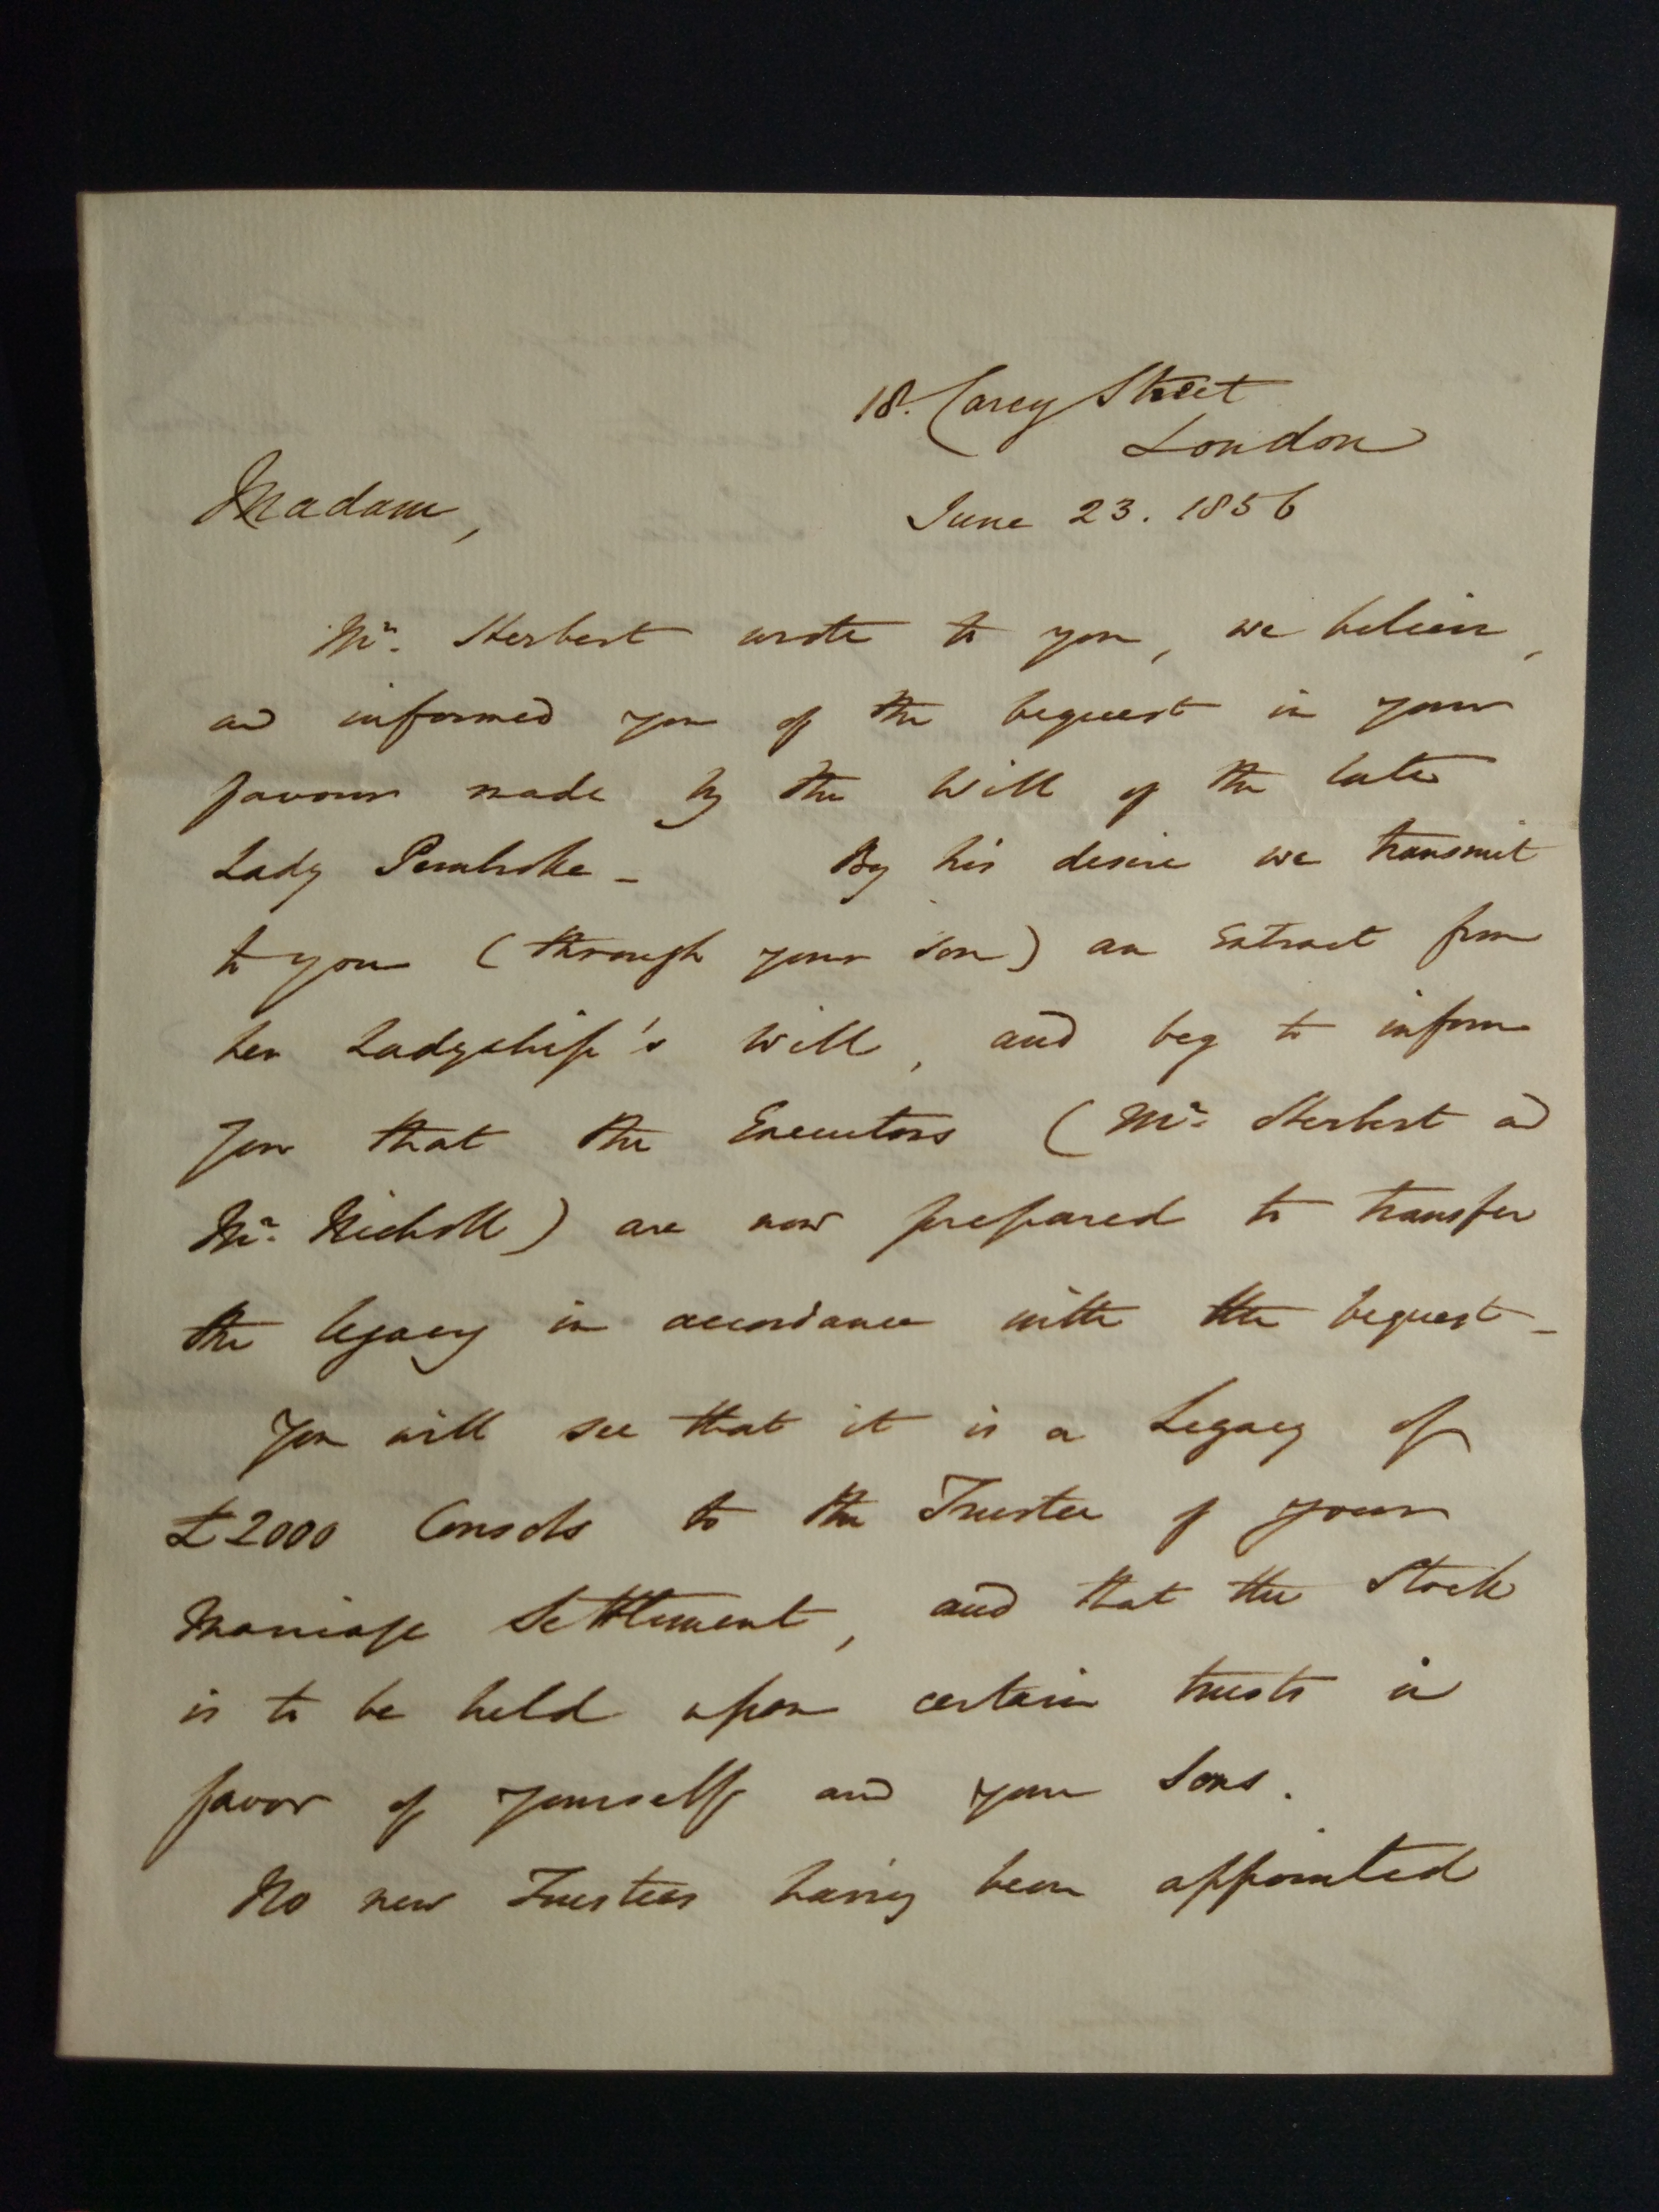 18. Carey Street
London
June 23. 1856
Madam,
Mr. Herbert wrote to you, we believe,
and informed you of the bequest in your
favour made by the Will of the late
Lady Pembroke - By his desire we transmit
to you (through your son) an Extract from
her Ladyship's Will, and beg to inform
you that the Executors (Mr. Herbert and
Mr. Nicholl) are now prepared to transfer
the legacy in accordance with the bequest -
You will see that it is a Legacy of
£2000 Consols to the Trustee of your
Marriage Settlement, and that the Stock
is to be held upon certain trusts in
favor of yourself and your Sons.
No new Trustees having been appointed